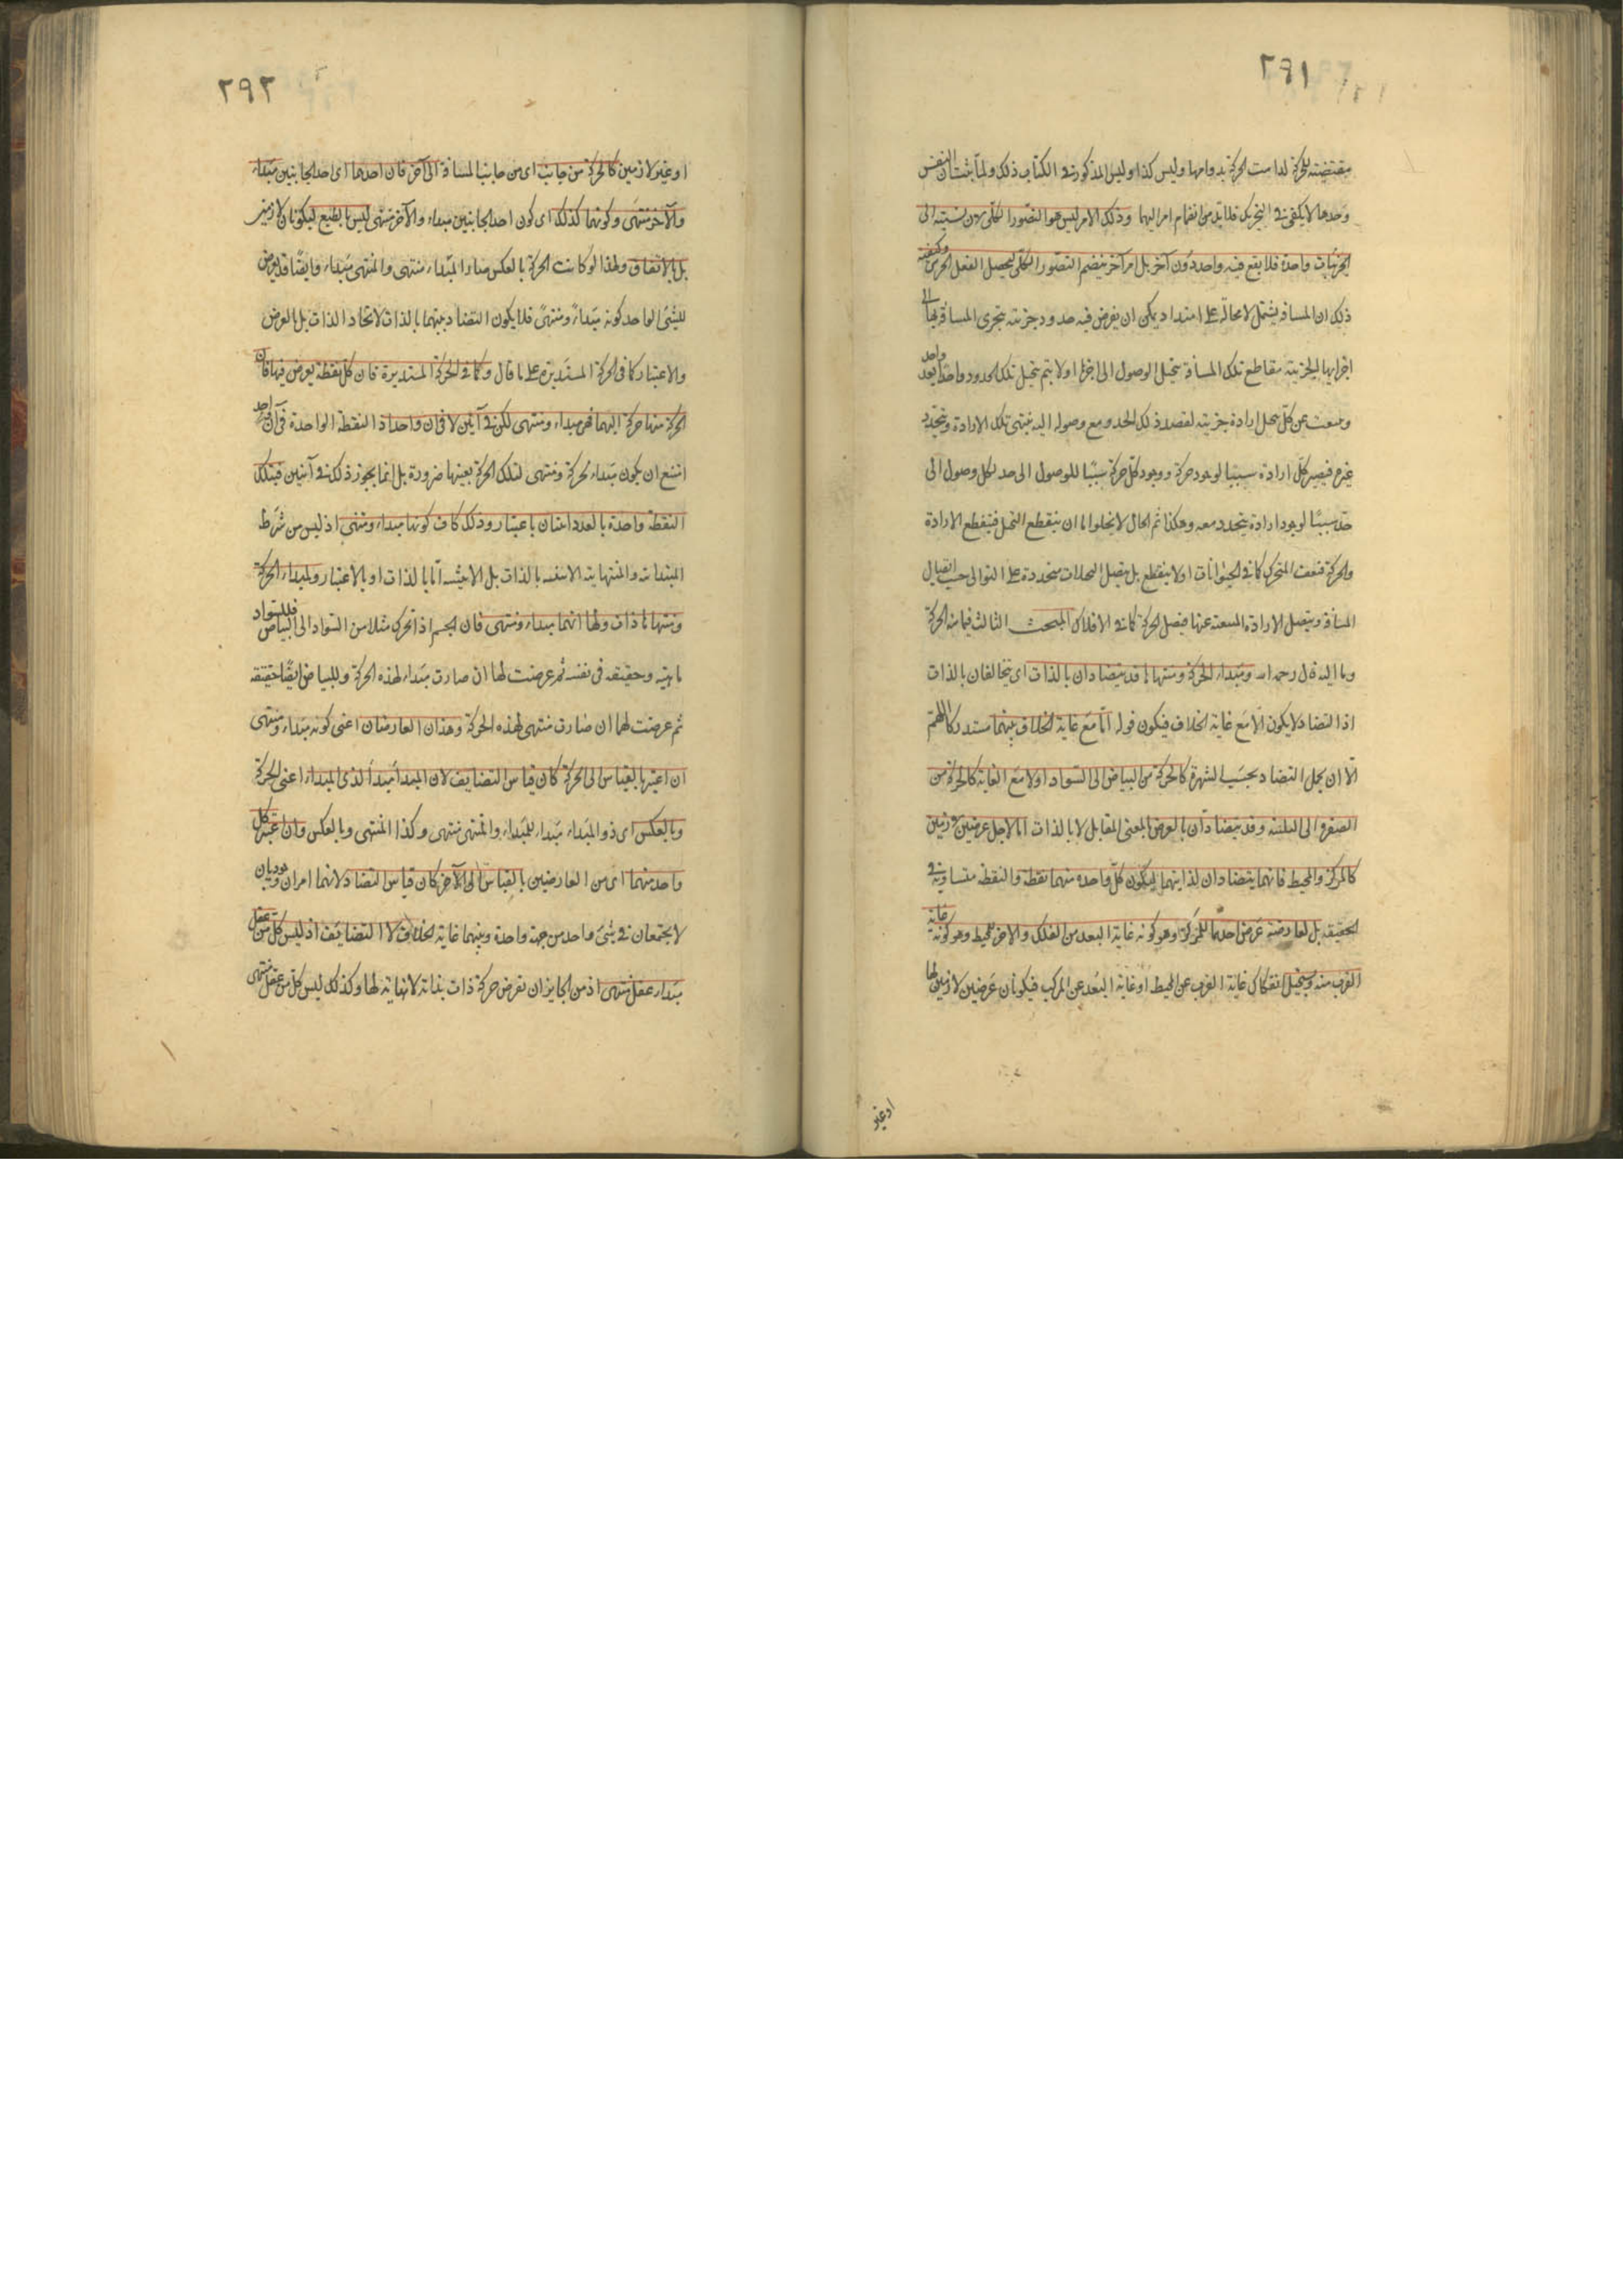 ٢٩١
مقتضية للحركة لدامت الحركة بدوامها وليس كذا وليس المذكور في الكتاب ذلك ولما ثبت ان النفس
وحدها لا يكفي في التحريك فلا بد من انضمام امر اليها وذلك الامر ليس هو التصور الكلي لان نسبته الى
الجزئيات واحدة فلا يقع فيه واحد دون آخر بل امر آخر ينضم التصور الكلي ليحصل الفعل الجزئي وكيفية
ذلك ان المسافة يشتمل لا محالة على امتداد يمكن ان يفرض فيه حدود جزئية يتجزى المسافة بها الى
اجزائها الجزئية مقاطع تلك المسافة يتخيل الوصول الى اخرها اولا يتم يتخيل تلك الحدود واحدا بعد واحد
وينبعث عن كل تخيل ارادة جزئية لقصد ذلك الحد ومع وصوله اليه ينتهي تلك الارادة ويتجدد
غيرها فيصير كل ارادة سببا لوجود حركة ووجود كل حركة سببا للوصول الى حد وكل وصول الى
حد سببا لوجود ارادة يتجدد معه وهكذا ثم الحال لا يخلوا اما ان ينقطع التخيل فينقطع الارادة
والحركة فيقف المتحرك كما في الحيوانات اولا ينقطع بل يتصل التخيلات متجددة على التوالي حسب اتصال
المسافة ويتصل الارادة المنبعثة عنها فيتصل الحركة كما في الافلاك المبحث الثالث فيما منه الحركة
وما اليه قال رحمه الله ومبداء الحركة ومنتهاها قد يتضادان بالذات اى يتخالفان بالذات
اذ التضاد لا يكون الا مع غاية الخلاف فيكون قوله اما مع غاية الخلاف بينهما مستدركا اللهم
الا ان يحمل التضاد بحسب الشهرة كالحركة من البياض الى السواد اولا مع الغاية كالحركة من
الصفرة الى النيلية وقد يتضادان بالعرض بالمعنى المقابل لا بالذات اما لاجل عرضين لازمين
كالمركز والمحيط فانهما يتضادان لذاتيهما ليكون كل واحدة منهما نقطة والنقطة متساوية في
الحقيقة بل لعارضة عرض احدهما للمركز وهو كونه غاية البعد من الفلك والاخر للمحيط وهو كونه غاية
القرب منه ويستحيل انفكاك غاية القرب عن المحيط او غاية البعد عن المركب فيكونان عرضين لازمين لها
او غير
٢٩٢
او غير لازمين كالحركة من جانب اى من جانب المسافة الى آخر فان احدهما اى احد الجانبين مبداء
والآخر منتهى وكونهما كذلك اى كون احد الجانبين مبداء والآخر منتهى ليس بالطبع ليكونان لازمين
بل بالاتفاق ولهذا لو كانت الحركة بالعكس صار المبداء منتهى والمنتهى مبداء وايضا قد يعرض
للشئ الواحد كونه مبداء ومنتهى فلا يكون التضاد بينهما بالذات لاتحاد الذات بل بالعرض
والاعتبار كما في الحركة المستديرة على ما قال وكما في الحركة المستديرة فان كل نقطة يعرض فيها فان
الحركة منها حركة اليها فهو مبداء ومنتهى لكن في آنين لا في آن واحد اذ النقطة الواحدة في آن واحد
امتنع ان يكون مبداء لحركة ومنتهى لتلك الحركة بعينها ضرورة بل انما يجوز ذلك في آنين فتلك
النقطة واحدة بالعدد اثنان باعتبار وذلك كاف كونها مبداء ومنتهى اذ ليس من شرط
المبتدائية والمنتهائية بالذات بل الاثنينية اما بالذات او بالاعتبار ولمبداء الحركة
ومنتهاها ذات ولها انهما مبداء ومنتهى فان الجسم اذ اتحرك مثلا من السواد الى البياض فللسواد
ماهية وحقيقة في نفسه ثم عرضت لها ان صارت مبداء لهذه الحركة وللبياض ايضا حقيقة
ثم عرضت لها ان صارت منتهى لهذه الحركة وهذان العارضان اعنى كونه مبداء ومنتهى
ان اعتبرا بالقياس الى الحركة كان قياس التضايف لان المبدا مبدأ لذى المبداء اعنى الحركة
وبالعكس اى ذو المبداء مبداء للمبداء والمنتهى منتهى وكذا المنتهى وبالعكس وان اعتبر كل
واحد منهما اى من العارضين بالقياس الى الآخر كان قياس التضاد لانهما امران وجوديان
لا يجتمعان في شئ واحد من جهة واحدة وبينهما غاية الخلاف لا التضايف اذ ليس كل من عقل
مبداء عقل منتهى اذ من الجايز ان نفرض حركة ذات بداية لا نهاية لها وكذلك ليس كل من عقل منتهى